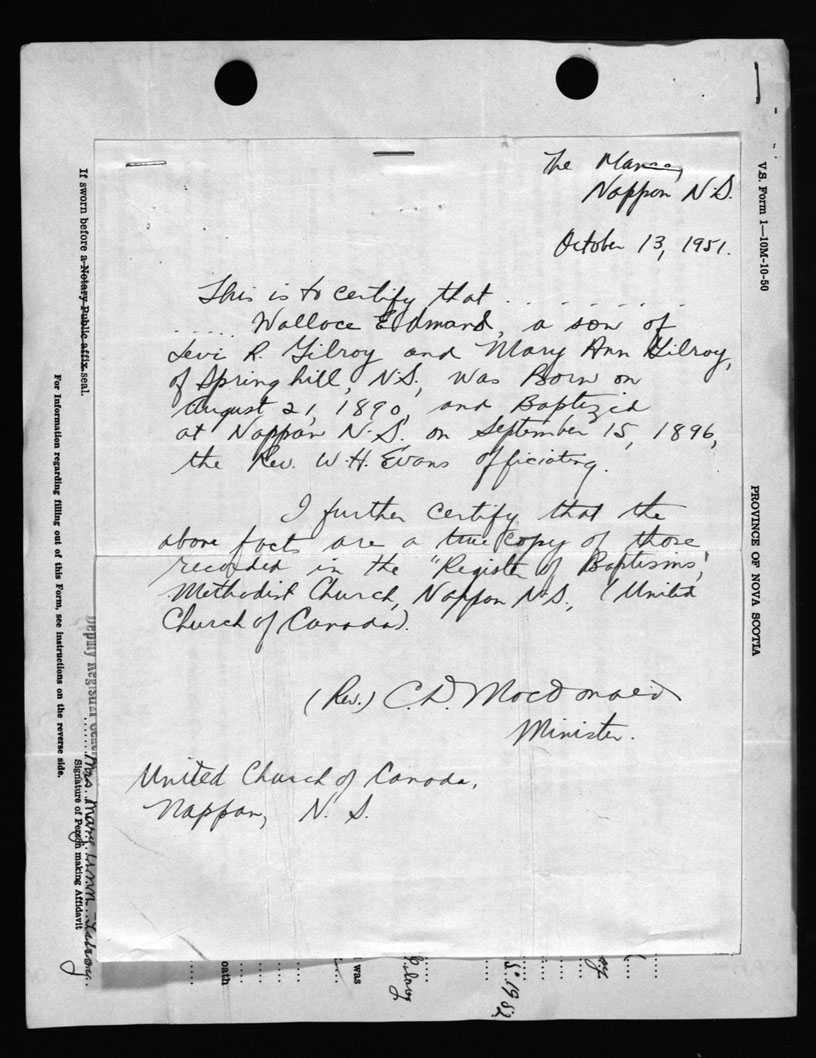 The Manse,
Nappan N.S.
October 13, 1951.
This is to certify that . . . . . . . .
. . . . . Wallace Edmand, a son of
Levi R. Gilroy and Mary Ann Gilroy,
of Springhill, N.S., was Born on
August 21, 1890, and Baptized
at Nappan N.S. on September 15, 1896,
the Rev. W.H. Evans officiating.
I further certify that the
above facts are a true copy of those
recorded in the "Register of Baptisms",
Methodist Church, Nappan N.S., (United
Church of Canada).
(Rev.) C.D. MacDonald
Minister.
United Church of Canada,
Nappan, N. S.
V.S. Form 1—10M-10-50
PROVINCE OF NOVA SCOTIA
If sworn before a Notary Public affix seal.
For Information regarding filling out of this Form, see instructions on the reverse side.
Deputy Registrar
Mrs. Mary Ann Gilroy
Signature of Person making Affidavit
oath
was
1952